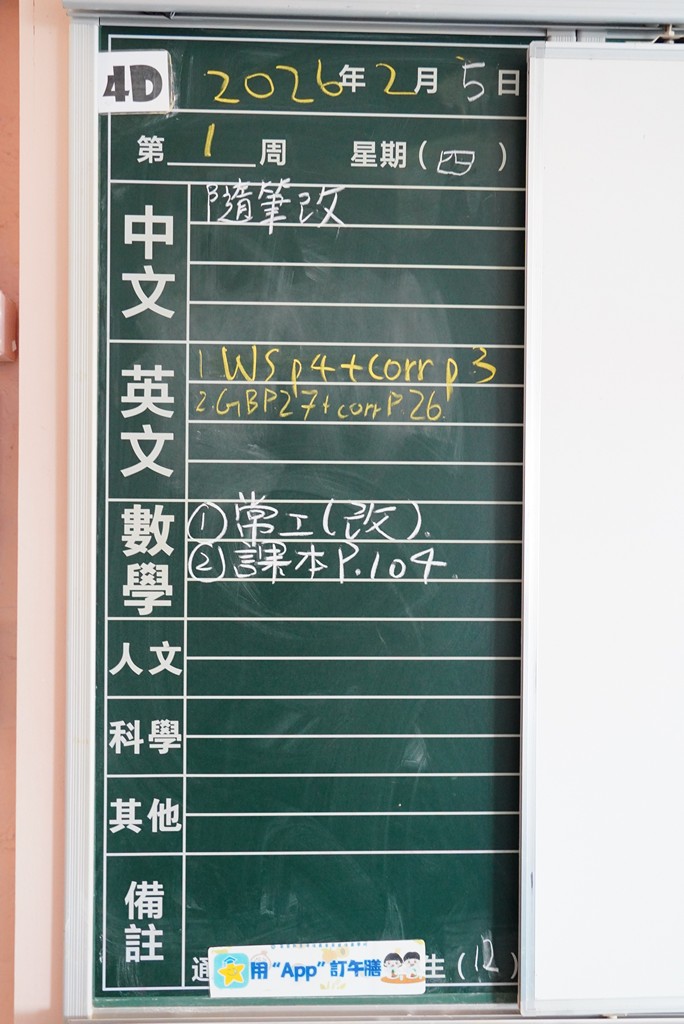 4D
2026年2月5日
第1周 星期(四)
中文
隨筆改
英文
1 WS p4+corr p3
2.GB P.27+corr P.26.
數學
①常工(改).
②課本P.104.
人文
科學
其他
備註
通
生(12)
用“App”訂午膳